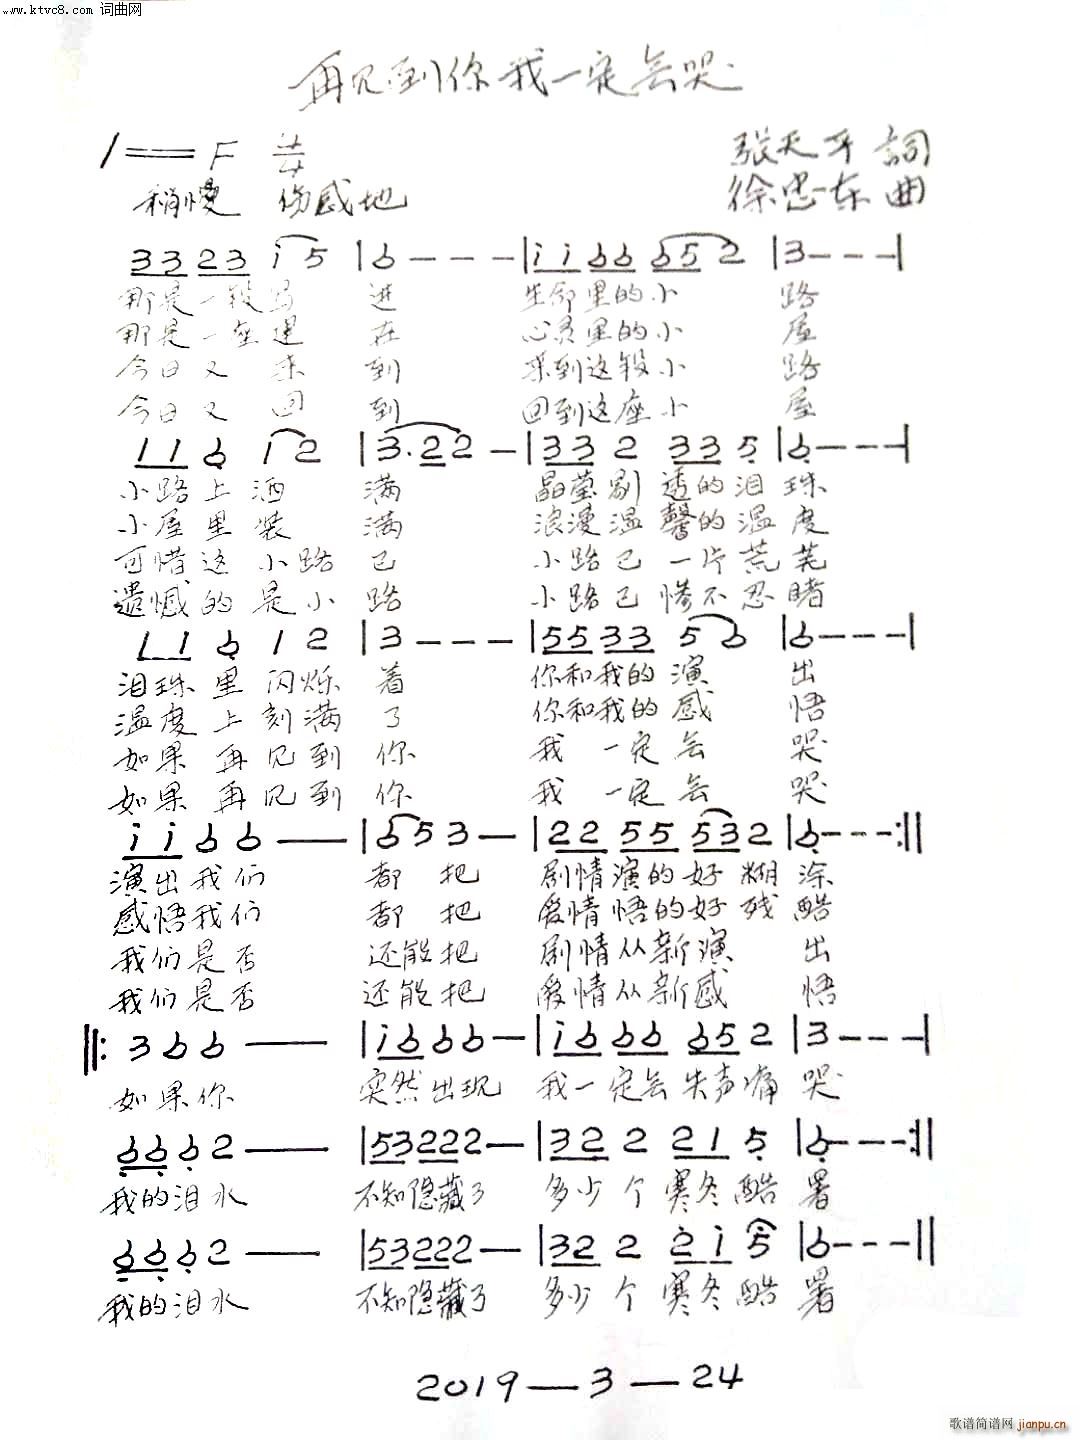 www.ktvc8.com 词曲网
再见到你我一定会哭
1==F 4/4
张天平 詞
稍慢 伤感地
徐忠东 曲
33 23 i5 | 6 - - - | ii 66 65 2 | 3 - - - |
那是一段写 进 生命里的小 路
那是一座建 在 心灵里的小 屋
今日又 来 到 来到这段小 路
今日又 回 到 回到这座小 屋
11 6 12 | 3.22 - | 33 2 33 5 | 6 - - - |
小路上洒 满 晶莹剔透的泪 珠
小屋里装 满 浪漫温馨的温 度
可惜这小路 已 小路已一片荒 芜
遗憾的是小 路 小路已惨不忍 睹
11 6 1 2 | 3 - - - | 55 33 5 6 | 6 - - - |
泪珠里闪烁 着 你和我的演 出
温度上刻满 了 你和我的感 悟
如果再见到 你 我一定会 哭
如果再见到 你 我一定会 哭
ii 6 6 —— | 65 3 — | 22 55 53 2 | 6 - - - :||
演出我们 都把 剧情演的好糊 涂
感悟我们 都把 爱情悟的好残 酷
我们是否 还能把 剧情从新演 出
我们是否 还能把 爱情从新感 悟
||: 3 6 6 —— | i6 6 6 — | i6 66 65 2 | 3 - - - |
如果你 突然出现 我一定会失声痛 哭
66 6 2 —— | 53 22 2 — | 32 2 21 5 | 6 - - - :||
我的泪水 不知隐藏了 多少个寒冬酷 署
66 6 2 —— | 53 22 2 — | 32 2 2i 5 | 6 - - - ||
我的泪水 不知隐藏了 多少个寒冬酷 署
2019—3—24
歌谱简谱网 jianpu.cn